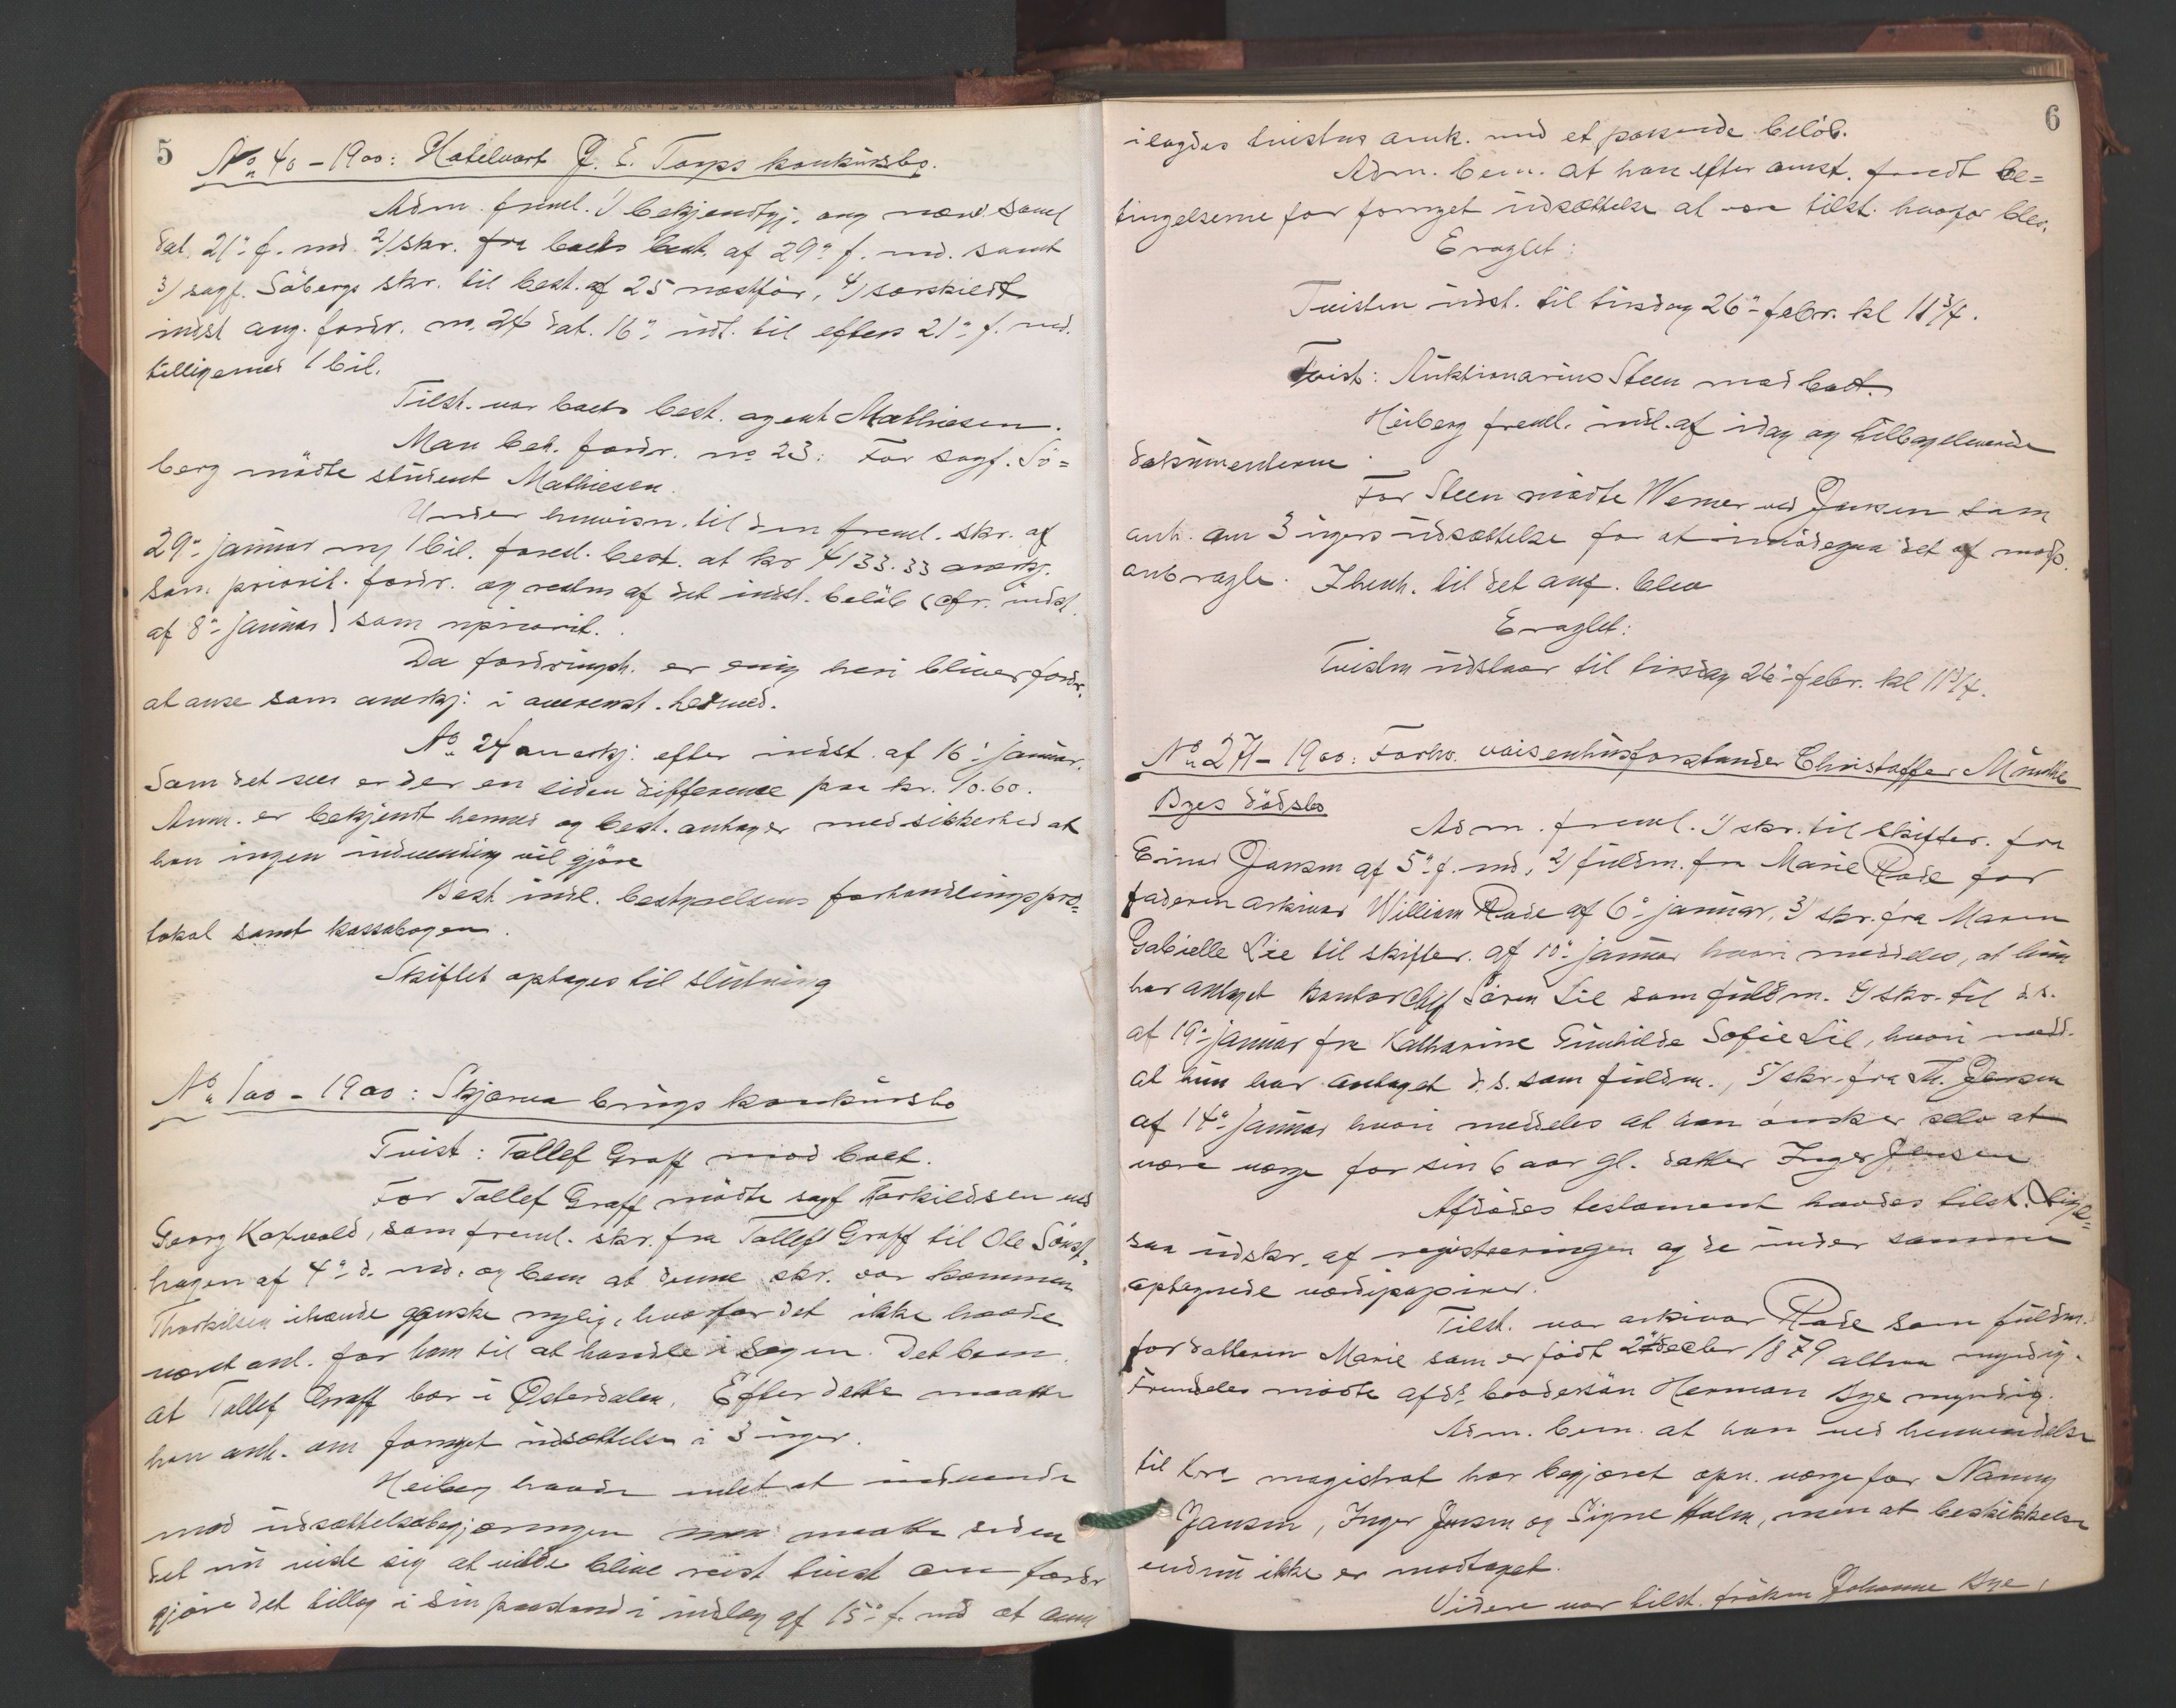 5
No 40 - 1900: Hotelvært J. E. Torps konkursbo.
Adm. freml. 1) bekjendtgj. ang. møde saml
dat. 21de f. md. 2) skr. fra boets best. af 29de f. md. samt
3) sagf. Söbergs skr. til best. af 25 næstfør, 4) særskildt
indst ang. fordr. no. 24 dat. 16de indl. til efters 21de f. md.
tilligemed 1 bil.
Tilst. var boets best. agent Mathiesen.
Man beh. fordr. no 23: For sagf. Sö=
berg mödte student Mathiesen.
Under henvisn. til den freml. skr. af
29de januar m 1 bil. foresl. best. at kr 4133.33 anerkj.
som priorit. fordr. og resten af det indst. belöb (cfr. indst.
af 8de januar) som upriorit.
Da fordringsh. er enig heri bliver fordr.
at anse som anerkj. i overenst. hermed.
No 24 anerkj. efter indst. af 16de januar.
Som det sees er der en liden difference paa kr. 10.60.
Anm. er bekjendt hermed og best. antager med sikkerhed at
han ingen indvending vil gjöre
Best indl. bestyrelsens forhandlingspro=
tokol samt kassabogen.
Skiftet optages til slutning
No 100 - 1900: Skjærva brugs konkursbo
Tvist: Tollef Graff mod boet.
For Tollef Graff mödte sagf Torkildsen ved
Georg Kaxvold, som freml. skr. fra Tollef Graff til Ole Sönst=
hagen af 4de d. md. og bem at denne skr. var kommen
Thorkilsen ihænde ganske nylig, hvorfor det ikke havde
været anl. for ham til at handle i sagen. Det bem.
at Tollef Graff bor i Østerdalen. Efter dette maatte
han anh. om fornyet udsættelse i 3 uger.
Heiberg havde intet at indvende
mod udsættelsesbegjæringen men maatte siden
det nu viste sig at ville blive reist tvist om fordr
gjöre det tillæg i sin paastand i indlæg af 15de f. md at anm
6
ilagdes tvistens omk. med et passende belöb.
Adm. bem. at han efter omst. fandt be=
tingelserne for fornyet udsættelse at være tilst. hvorfor blev.
Eragtet:
Tvisten udst. til tirsdag 26de febr. kl 11 3/4.
Tvist: Auktionarius Steen mod boet.
Heiberg freml. indl. af idag og tilbageleverede
dokumenterne.
For Steen mödte Werner ved Jensen som
anh. om 3 ugers udsættelse for at imödegaa det af modp.
anbragte. I henh. til det anf. blev
Eragtet:
Tvisten udstaar til tirsdag 26de febr. kl 11 3/4.
No 271 - 1900: Forhv. vaisenhusforstander Christoffer Münthe
Byes dödsbo
Adm. freml. 1) skr. til skifter. fra
Einar Jansen af 5de f. md, 2) fuldm. fra Marie Rode for
faderen arkivar William Rode af 6de januar, 3) skr. fra Maren
Gabielle Lie til skifter. af 10de januar hvori meddeles, at hun
har antaget kontorchef Sören Lie som fuldm. 4) skr. til d.s.
af 19de januar fra Katharine Gunhilde Sofie Lie, hvori medd.
at hun har antaget d.s. som fuldm., 5) skr. fra Th. Jensen
af 14de januar hvori meddeles at han önsker selv at
være værge for sin 6 aar gl. datter Inger Jensen
Afdödes testament havdes tilst. lige=
saa udskr. af registreringen og de under samme
optegnede værdipapirer.
Tilst. var arkivar Rode som fuldm.
for datteren Marie som er födt 2den decbr 1879 altsaa myndig.
Fremdeles mödte afdö brodersön Herman Bye myndig.
Adm. bem. at han ved henvendelse
til Kra magistrat har begjæret opn. værge for Nanny
Jansen, Inger Jensen og Signe Holm, men at beskikkelse
endnu ikke er modtaget.
Videre var tilst. fröken Johanne Bye,